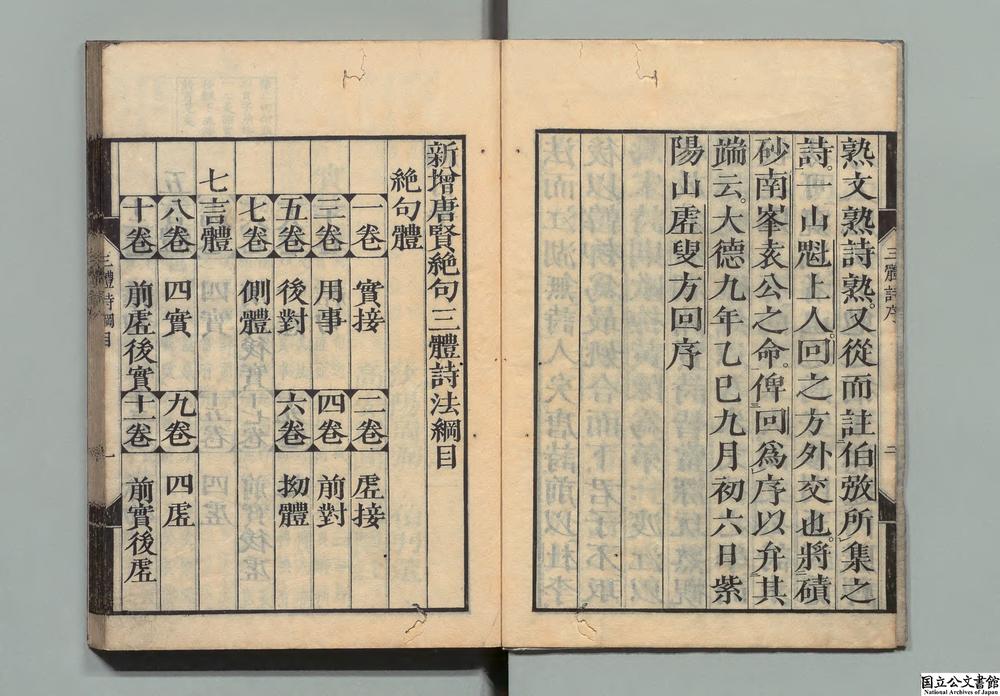 熟文熟詩熟又從而註伯弜所集之
詩一山魁上人回之方外交也將磧
砂南峯袁公之命俾回爲序以弁其
端云大德九年乙巳九月初六日紫
陽山虛叟方回序
三體詩序
二
新增唐賢絶句三體詩法綱目
絶句體
一卷 實接 二卷 虛接
三卷 用事 四卷 前對
五卷 後對 六卷 拗體
七卷 側體
七言體
八卷 四實 九卷 四虛
十卷 前虛後實 十一卷 前實後虛
三體詩綱目
一
国立公文書館
National Archives of Japan